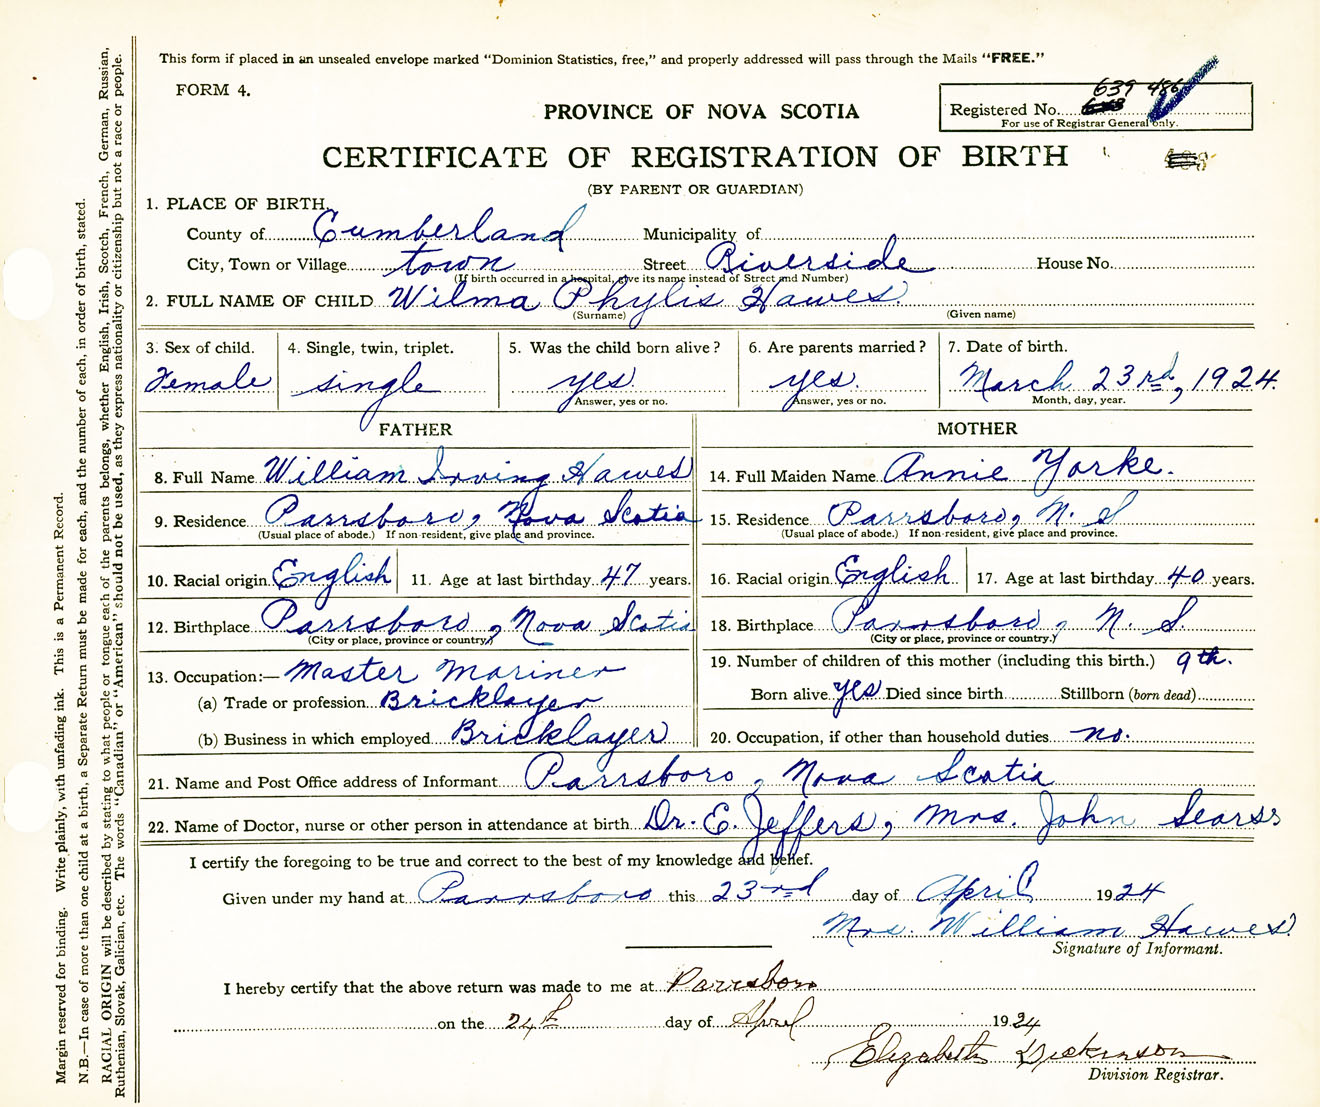 This form if placed in an unsealed envelope marked "Dominion Statistics, free," and properly addressed will pass through the Mails "FREE."
FORM 4.
639 486
PROVINCE OF NOVA SCOTIA
Registered No.
For use of Registrar General only.
CERTIFICATE OF REGISTRATION OF BIRTH
(BY PARENT OR GUARDIAN)
1. PLACE OF BIRTH.
County of Cumberland Municipality of
City, Town or Village town Street Riverside House No.
(If birth occurred in a hospital, give its name instead of Street and Number)
2. FULL NAME OF CHILD Wilma Phylis Hawes.
(Surname) (Given name)
3. Sex of child. 4. Single, twin, triplet. 5. Was the child born alive? 6. Are parents married? 7. Date of birth.
Female single yes. yes. March 23rd, 1924.
Answer, yes or no. Answer, yes or no. Month, day, year.
FATHER MOTHER
8. Full Name William Irving Hawes 14. Full Maiden Name Annie Yorke.
9. Residence Parrsboro, Nova Scotia 15. Residence Parrsboro, N. S
(Usual place of abode.) If non-resident, give place and province. (Usual place of abode.) If non-resident, give place and province.
10. Racial origin English 11. Age at last birthday 47 years. 16. Racial origin English 17. Age at last birthday 40 years.
12. Birthplace Parrsboro, Nova Scotia 18. Birthplace Parrsboro, N. S.
(City or place, province or country.) (City or place, province or country.)
13. Occupation:— Master Mariner 19. Number of children of this mother (including this birth.) 9th.
(a) Trade or profession Bricklayer Born alive yes Died since birth Stillborn (born dead)
(b) Business in which employed Bricklayer 20. Occupation, if other than household duties no.
21. Name and Post Office address of Informant Parrsboro, Nova Scotia
22. Name of Doctor, nurse or other person in attendance at birth Dr. E. Jeffers, Mrs. John Searss
I certify the foregoing to be true and correct to the best of my knowledge and belief.
Given under my hand at Parrsboro this 23rd day of April 1924
Mrs. William Hawes.
Signature of Informant.
I hereby certify that the above return was made to me at Parrsboro
on the 24th day of April 1924
Elizabeth Dickinson
Division Registrar.
Margin reserved for binding. Write plainly, with unfading ink. This is a Permanent Record.
N.B.—In case of more than one child at a birth, a Separate Return must be made for each, and the number of each, in order of birth, stated.
RACIAL ORIGIN will be described by stating to what people or tongue each of the parents belongs, whether English, Irish, Scotch, French, German, Russian,
Ruthenian, Slovak, Galician, etc. The words "Canadian" or "American" should not be used, as they express nationality or citizenship but not a race or people.